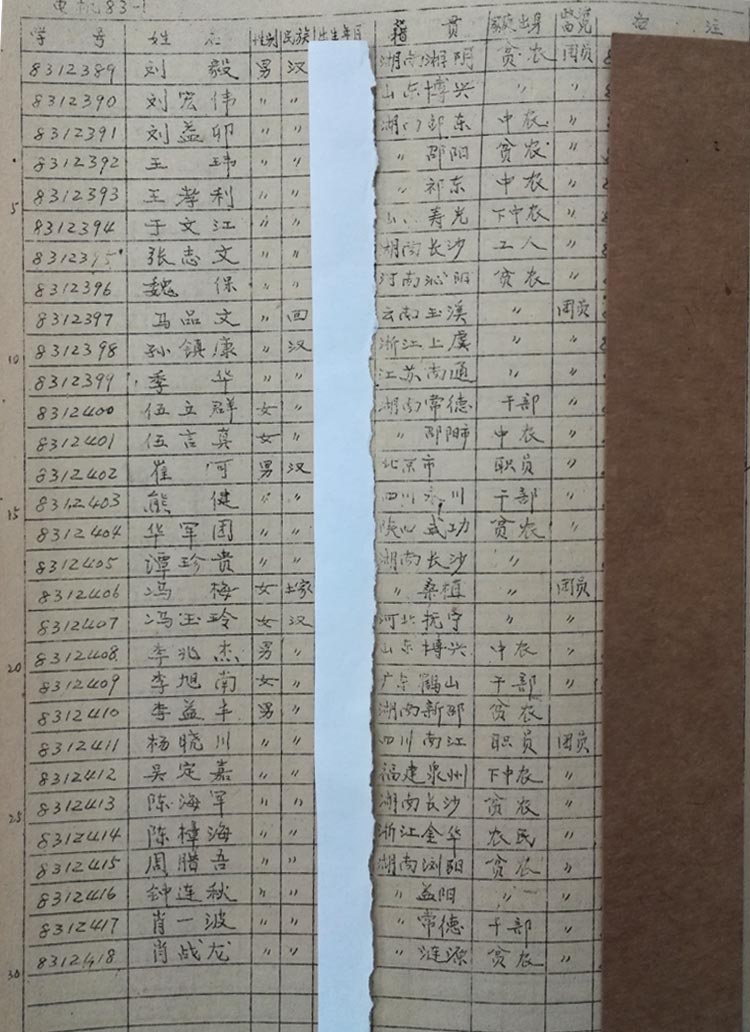 电机83-1
学号 姓名 性别 民族 出生年月 籍贯 家庭出身 政治面貌 备注
8312389 刘毅 男 汉 湖南湘阴 贫农 团员
8312390 刘宏伟 〃 〃 山东博兴 〃 〃
8312391 刘益卯 〃 〃 湖南邵东 中农 〃
8312392 王玮 〃 〃 〃邵阳 贫农 〃
5
8312393 王孝利 〃 〃 〃祁东 中农 〃
8312394 于文江 〃 〃 山东寿光 下中农 〃
8312395 张志文 〃 〃 湖南长沙 工人 〃
8312396 魏保 〃 〃 河南沁阳 贫农 〃
8312397 马品文 〃 回 云南玉溪 〃 团员
10
8312398 孙镇康 〃 汉 浙江上虞 〃 〃
8312399 季华 〃 〃 江苏南通 〃 〃
8312400 伍立群 女 〃 湖南常德 干部 〃
8312401 伍言真 女 〃 〃邵阳市 中农 〃
8312402 崔河 男 汉 北京市 职员 〃
15
8312403 熊健 〃 〃 四川永川 干部 〃
8312404 华军团 〃 〃 陕西武功 贫农 〃
8312405 谭珍贵 〃 〃 湖南长沙 〃
8312406 冯梅 女 土家 〃桑植 〃 团员
8312407 冯玉玲 女 汉 河北抚宁 〃 〃
20
8312408 李兆杰 男 〃 山东博兴 中农 〃
8312409 李旭南 女 〃 广东鹤山 干部 〃
8312410 李益丰 男 〃 湖南新邵 贫农
8312411 杨晓川 〃 〃 四川南江 职员 团员
8312412 吴定嘉 〃 〃 福建泉州 下中农 〃
25
8312413 陈海军 〃 〃 湖南长沙 贫农 〃
8312414 陈樟海 〃 〃 浙江金华 农民 〃
8312415 周腊吾 〃 〃 湖南浏阳 贫农 〃
8312416 钟连秋 〃 〃 〃益阳 〃 〃
8312417 肖一波 〃 〃 〃常德 干部 〃
30
8312418 肖战龙 〃 〃 〃涟源 贫农 〃